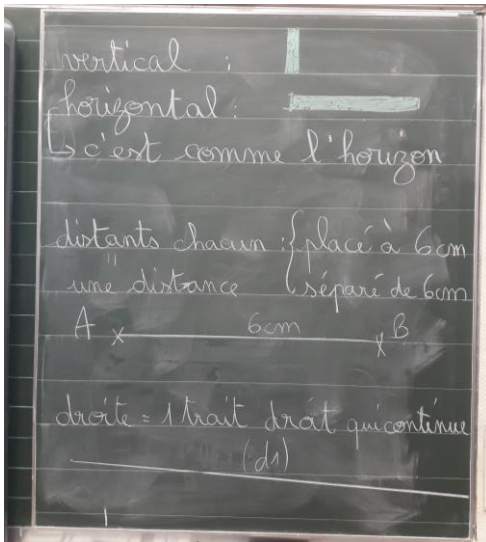 vertical :
horizontal :
↳ c'est comme l'horizon
distants chacun : { placé à 6cm
"
une distance { séparé de 6cm
A 6cm B
droite = 1 trait droit qui continue
(d1)